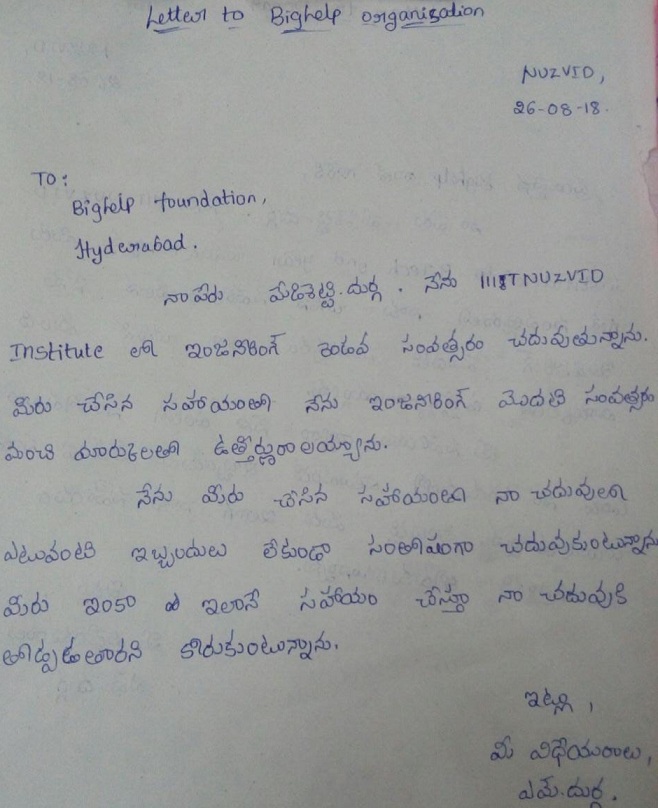 Letter to Bighelp organisation
NUZVID,
26-08-18.
TO:
Bighelp foundation,
Hyderabad.
నా పేరు మేడిశెట్టి.దుర్గ. నేను IIIT NUZVID
Institute లో ఇంజనీరింగ్ రెండవ సంవత్సరం చదువుతున్నాను.
మీరు చేసిన సహాయంతో నేను ఇంజనీరింగ్ మొదటి సంవత్సరం
మంచి మార్కులతో ఉత్తీర్ణురాలయ్యాను.
నేను మీరు చేసిన సహాయంతో నా చదువులో
ఎటువంటి ఇబ్బందులు లేకుండా సంతోషంగా చదువుకుంటున్నాను
మీరు ఇంకా ఇలానే సహాయం చేస్తూ నా చదువుకి
తోడ్పడతారని కోరుకుంటున్నాను.
ఇట్లు,
మీ విధేయురాలు,
ఎమ్.దుర్గ.